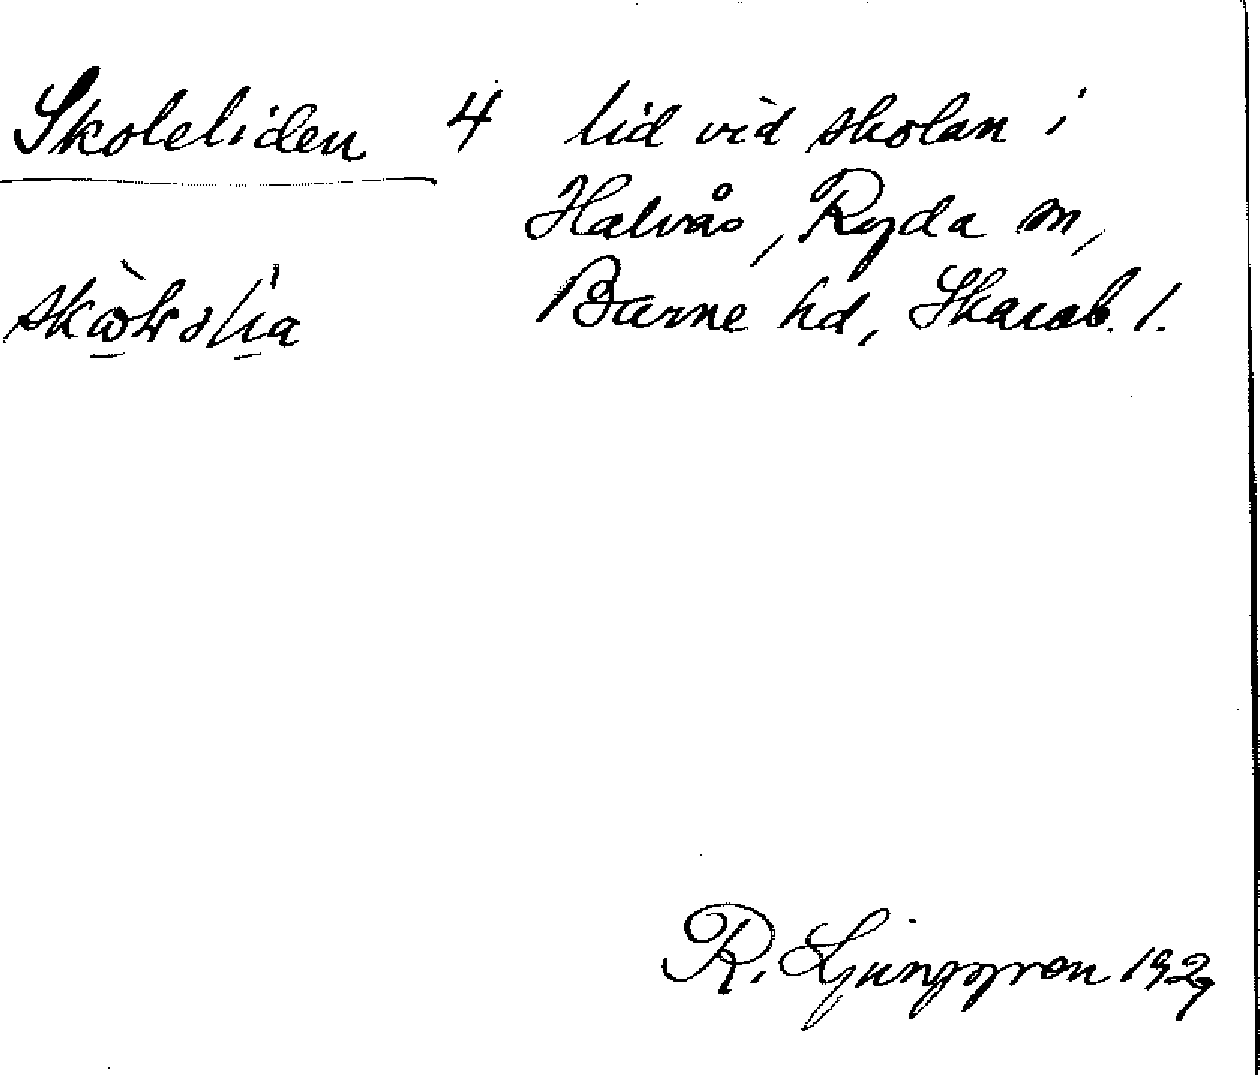 Skoleliden 4 lid vid skolan i
Halvås, Ryda sn,
Barne hd, Skarab. l.
R. Ljunggren 1929